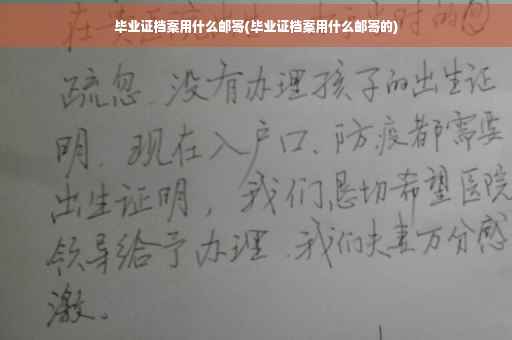 毕业证档案用什么邮寄(毕业证档案用什么邮寄的)
疏忽.没有办理孩子的出生证
明.现在入户口、防疫都需要
出生证明，我们恳切希望医院
领导给予办理.我们夫妻万分感
激。